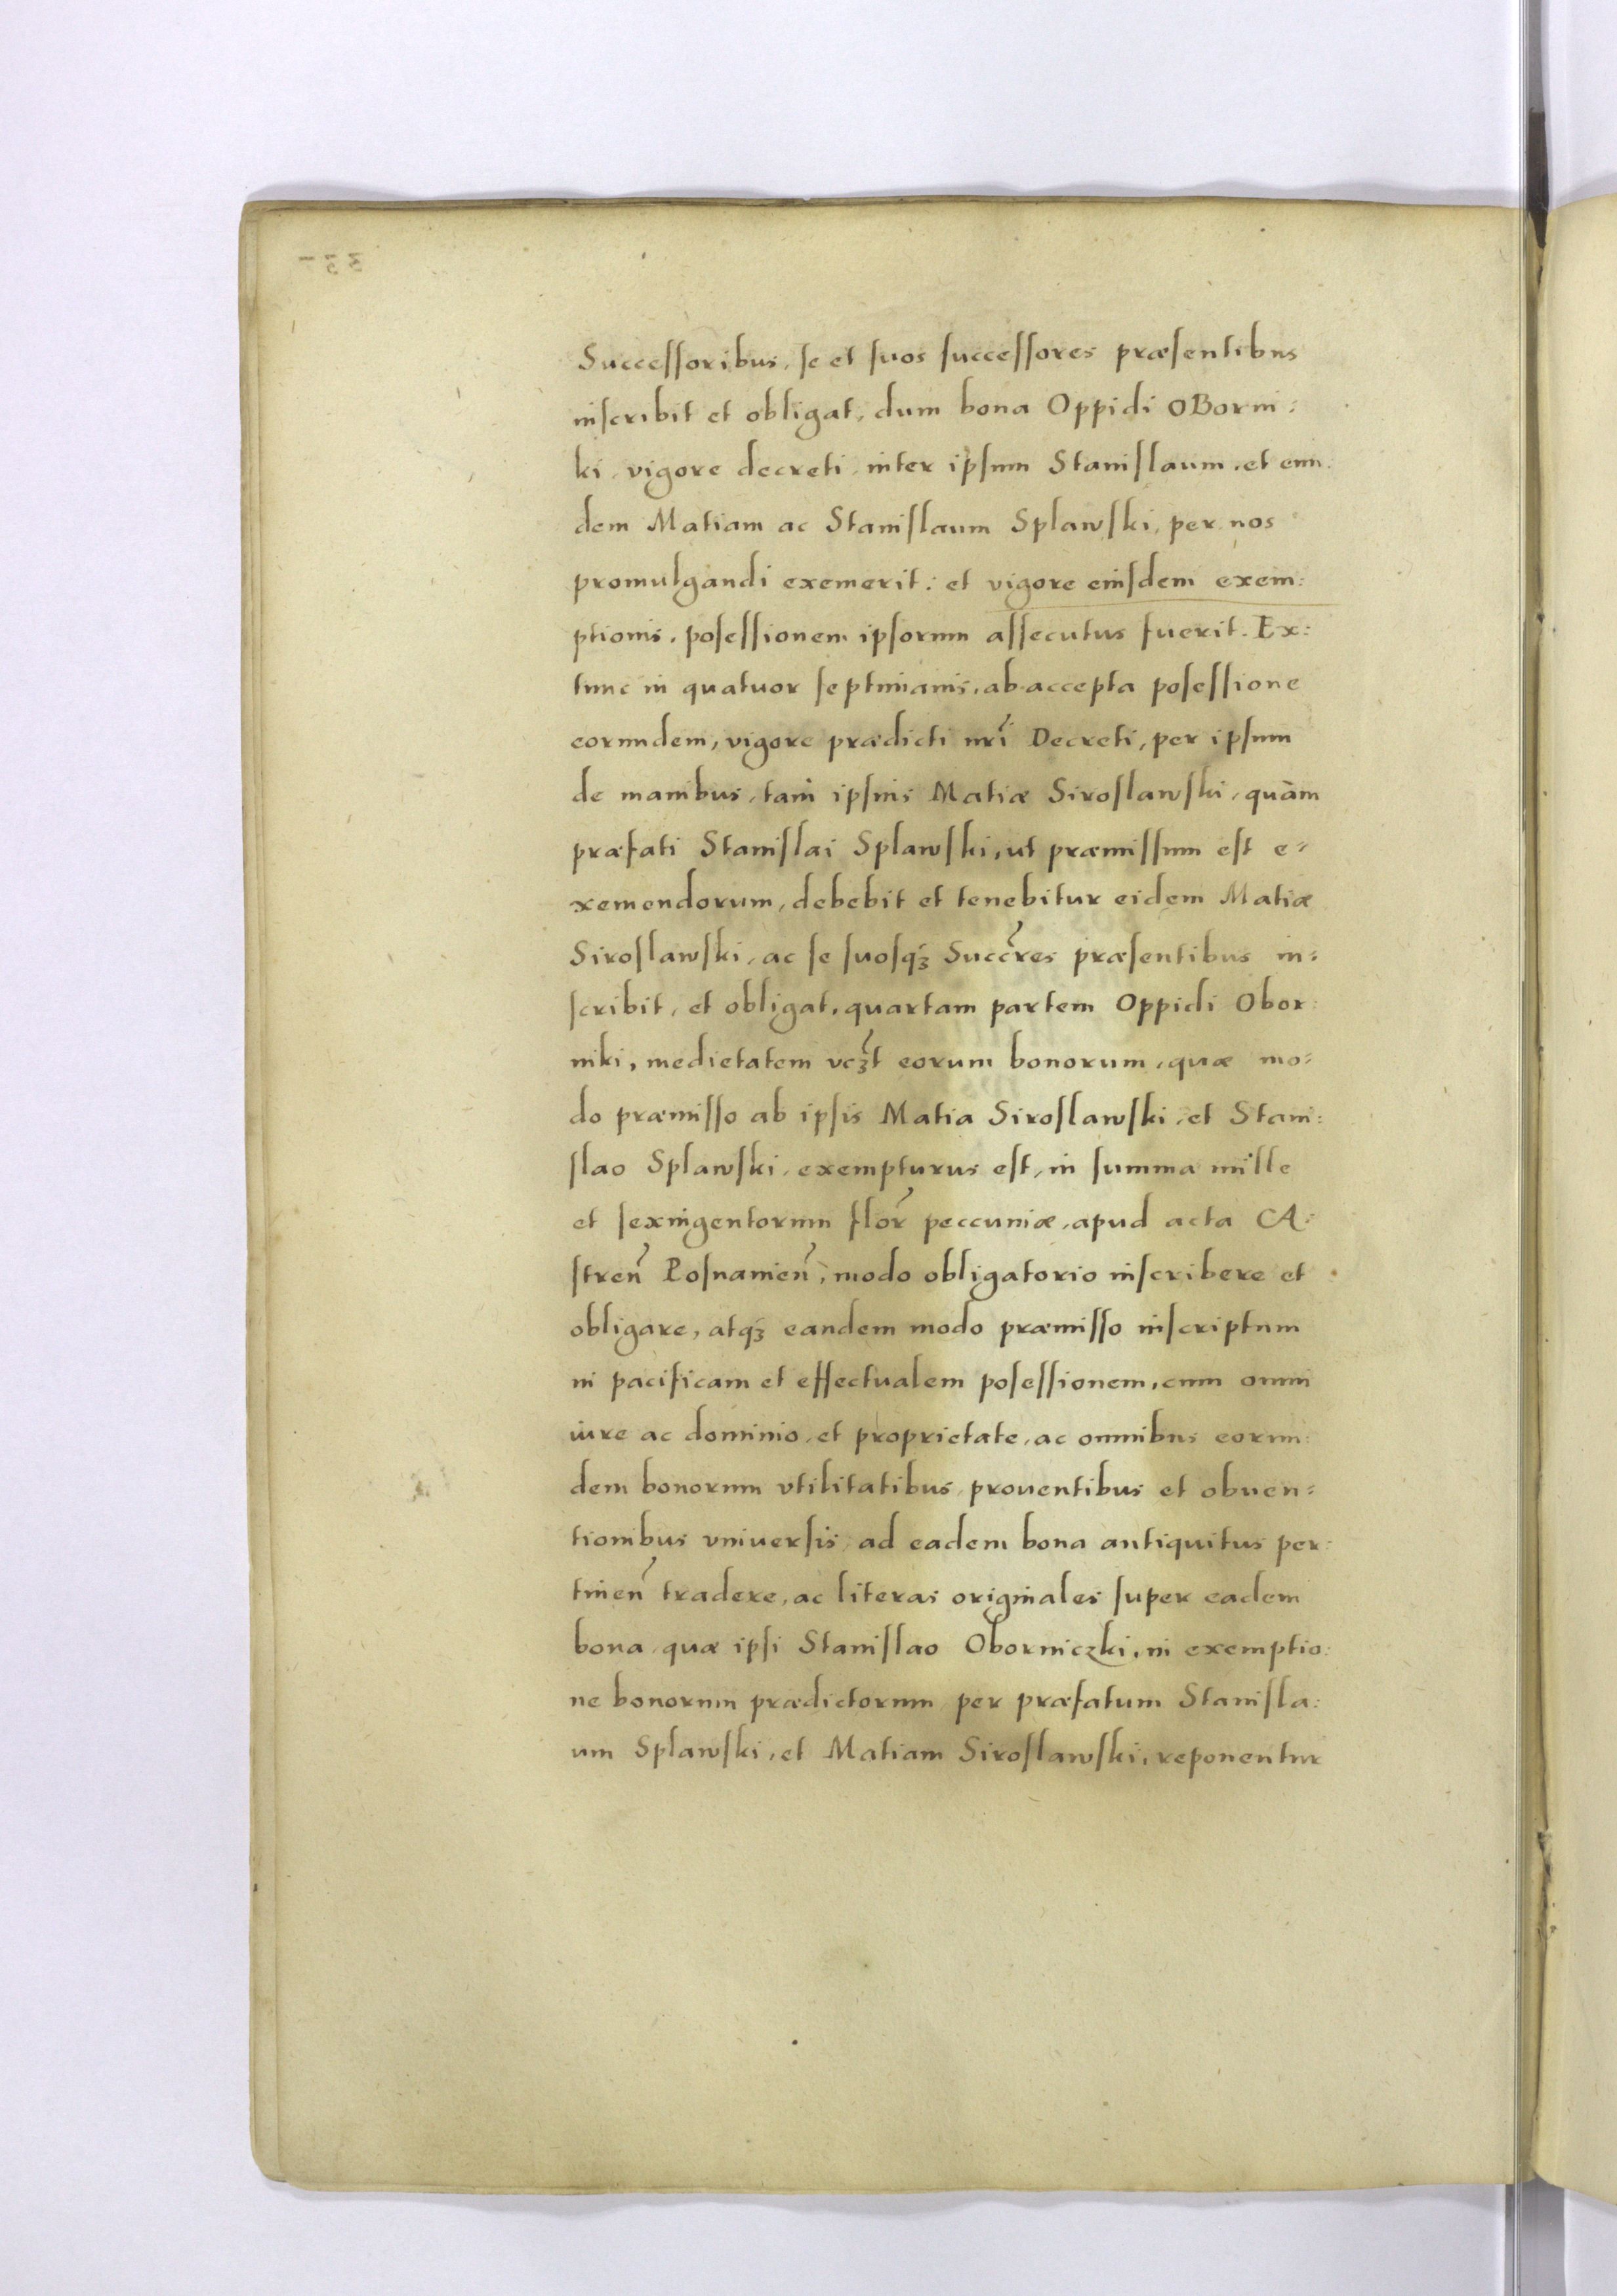 Successoribus, se et suos successores præsentibus
inscribit et obligat, dum bona Oppidi OBorni:
ki, vigore decreti, inter ipsum Stanislaum, et eun:
dem Matiam ac Stanislaum Splawski, per nos
promulgandi exemerit: et vigore eiusdem exem:
ptionis, posessionem ipsorum assecutus fuerit. Ex:
tunc in quatuor septimanis, ab accepta posessione
eorundem, vigore prædicti nri Decreti, per ipsum
de manibus, tam ipsius Matiæ Siroslawski, quàm
præfati Stanislai Splawski, ut præmissum est e=
xemendorum, debebit et tenebitur eidem Matiæ
Siroslawski, ac se suosqꝫ Succres præsentibus in=
scribit, et obligat, quartam partem Oppidi Obor:
niki, medietatem vcꝫt eorum bonorum, quæ mo=
do præmisso ab ipsis Matia Siroslawski, et Stani:
slao Splawski, exempturus est, in summa mille
et sexingentorum flor peccuniæ, apud acta CA:
stren Posnanien, modo obligatorio inscribere et
obligare, atqꝫ eandem modo præmisso inscriptum
in pacificam et effectualem posessionem, cum omni
iure ac dominio, et proprietate, ac omnibus eorun:
dem bonorum vtilitatibus, prouentibus et obuen=
tionibus vniuersis, ad eadem bona antiquitus per:
tinen tradere, ac literas originales super eadem
bona, quæ ipsi Stanislao Oborniczki, in exemptio:
ne bonorum prædictorum per præfatum Stanisla:
um Splawski, et Matiam Siroslawski, reponentur